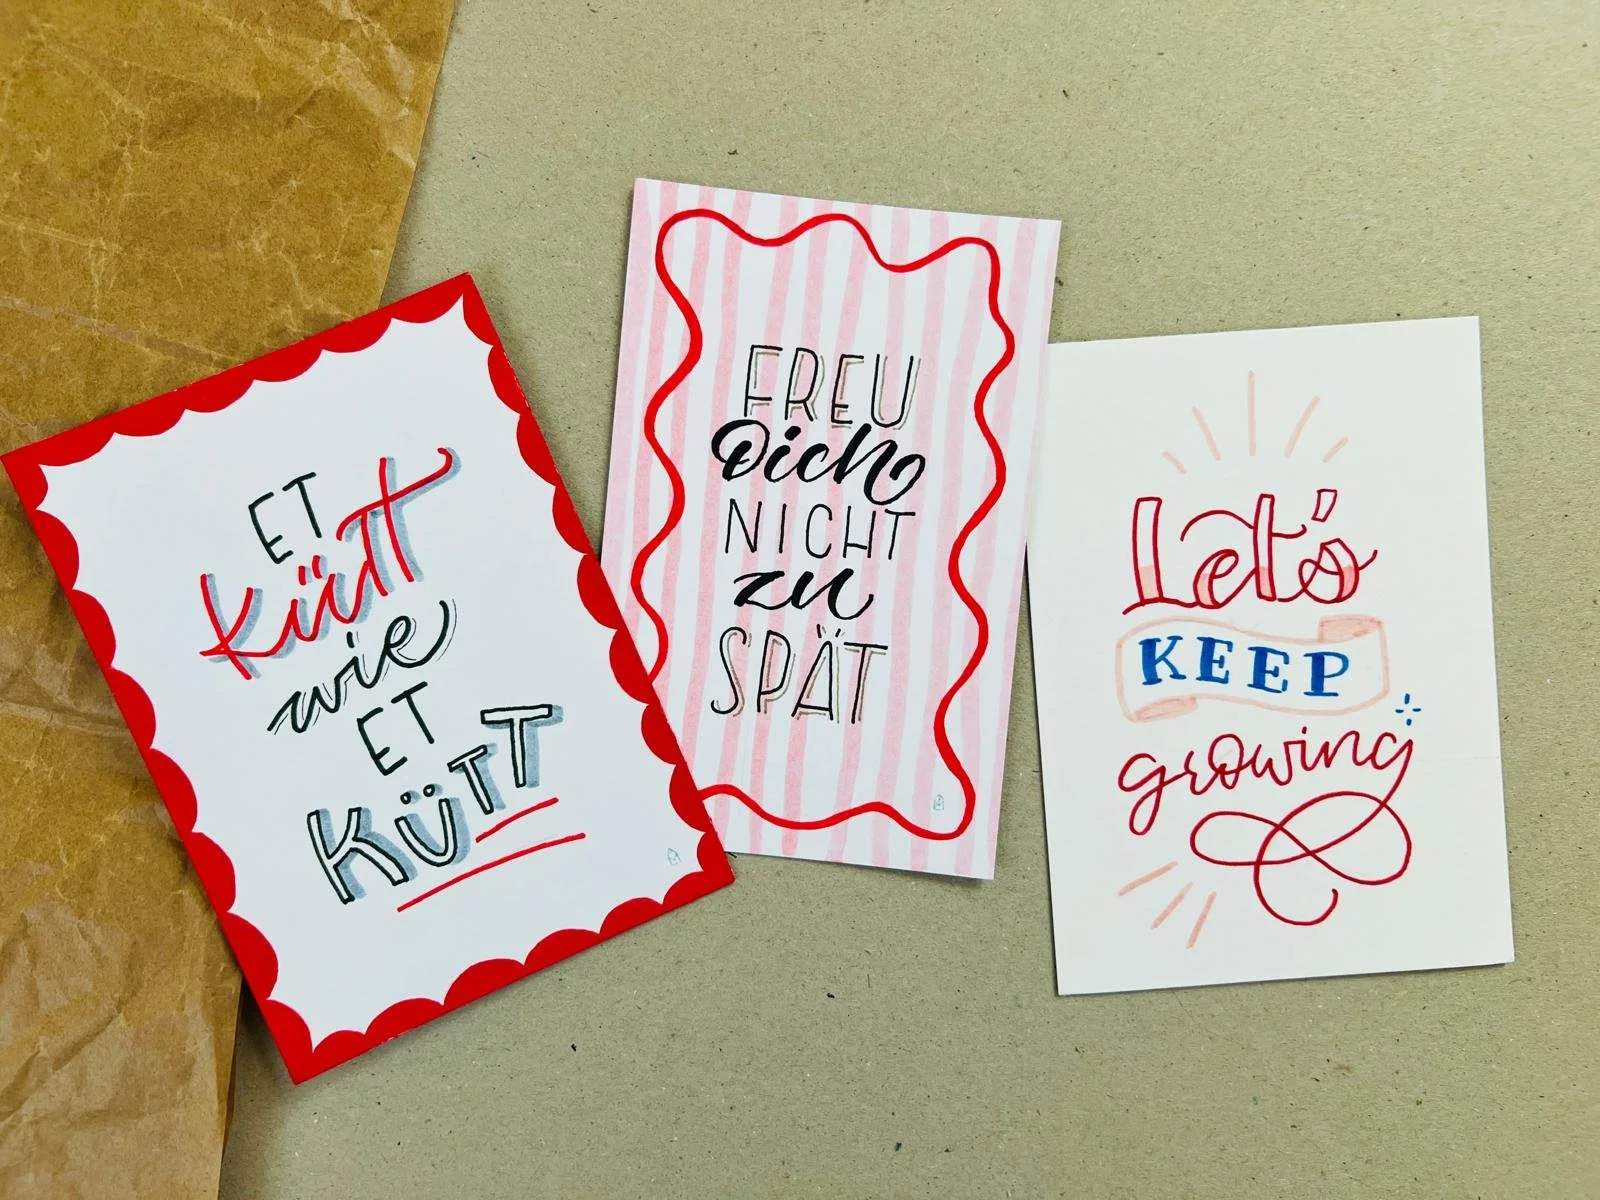 ET
kütt
wie
ET
KÜTT
FREU
Dich
NICHT
zu
SPÄT
Let's
KEEP
growing